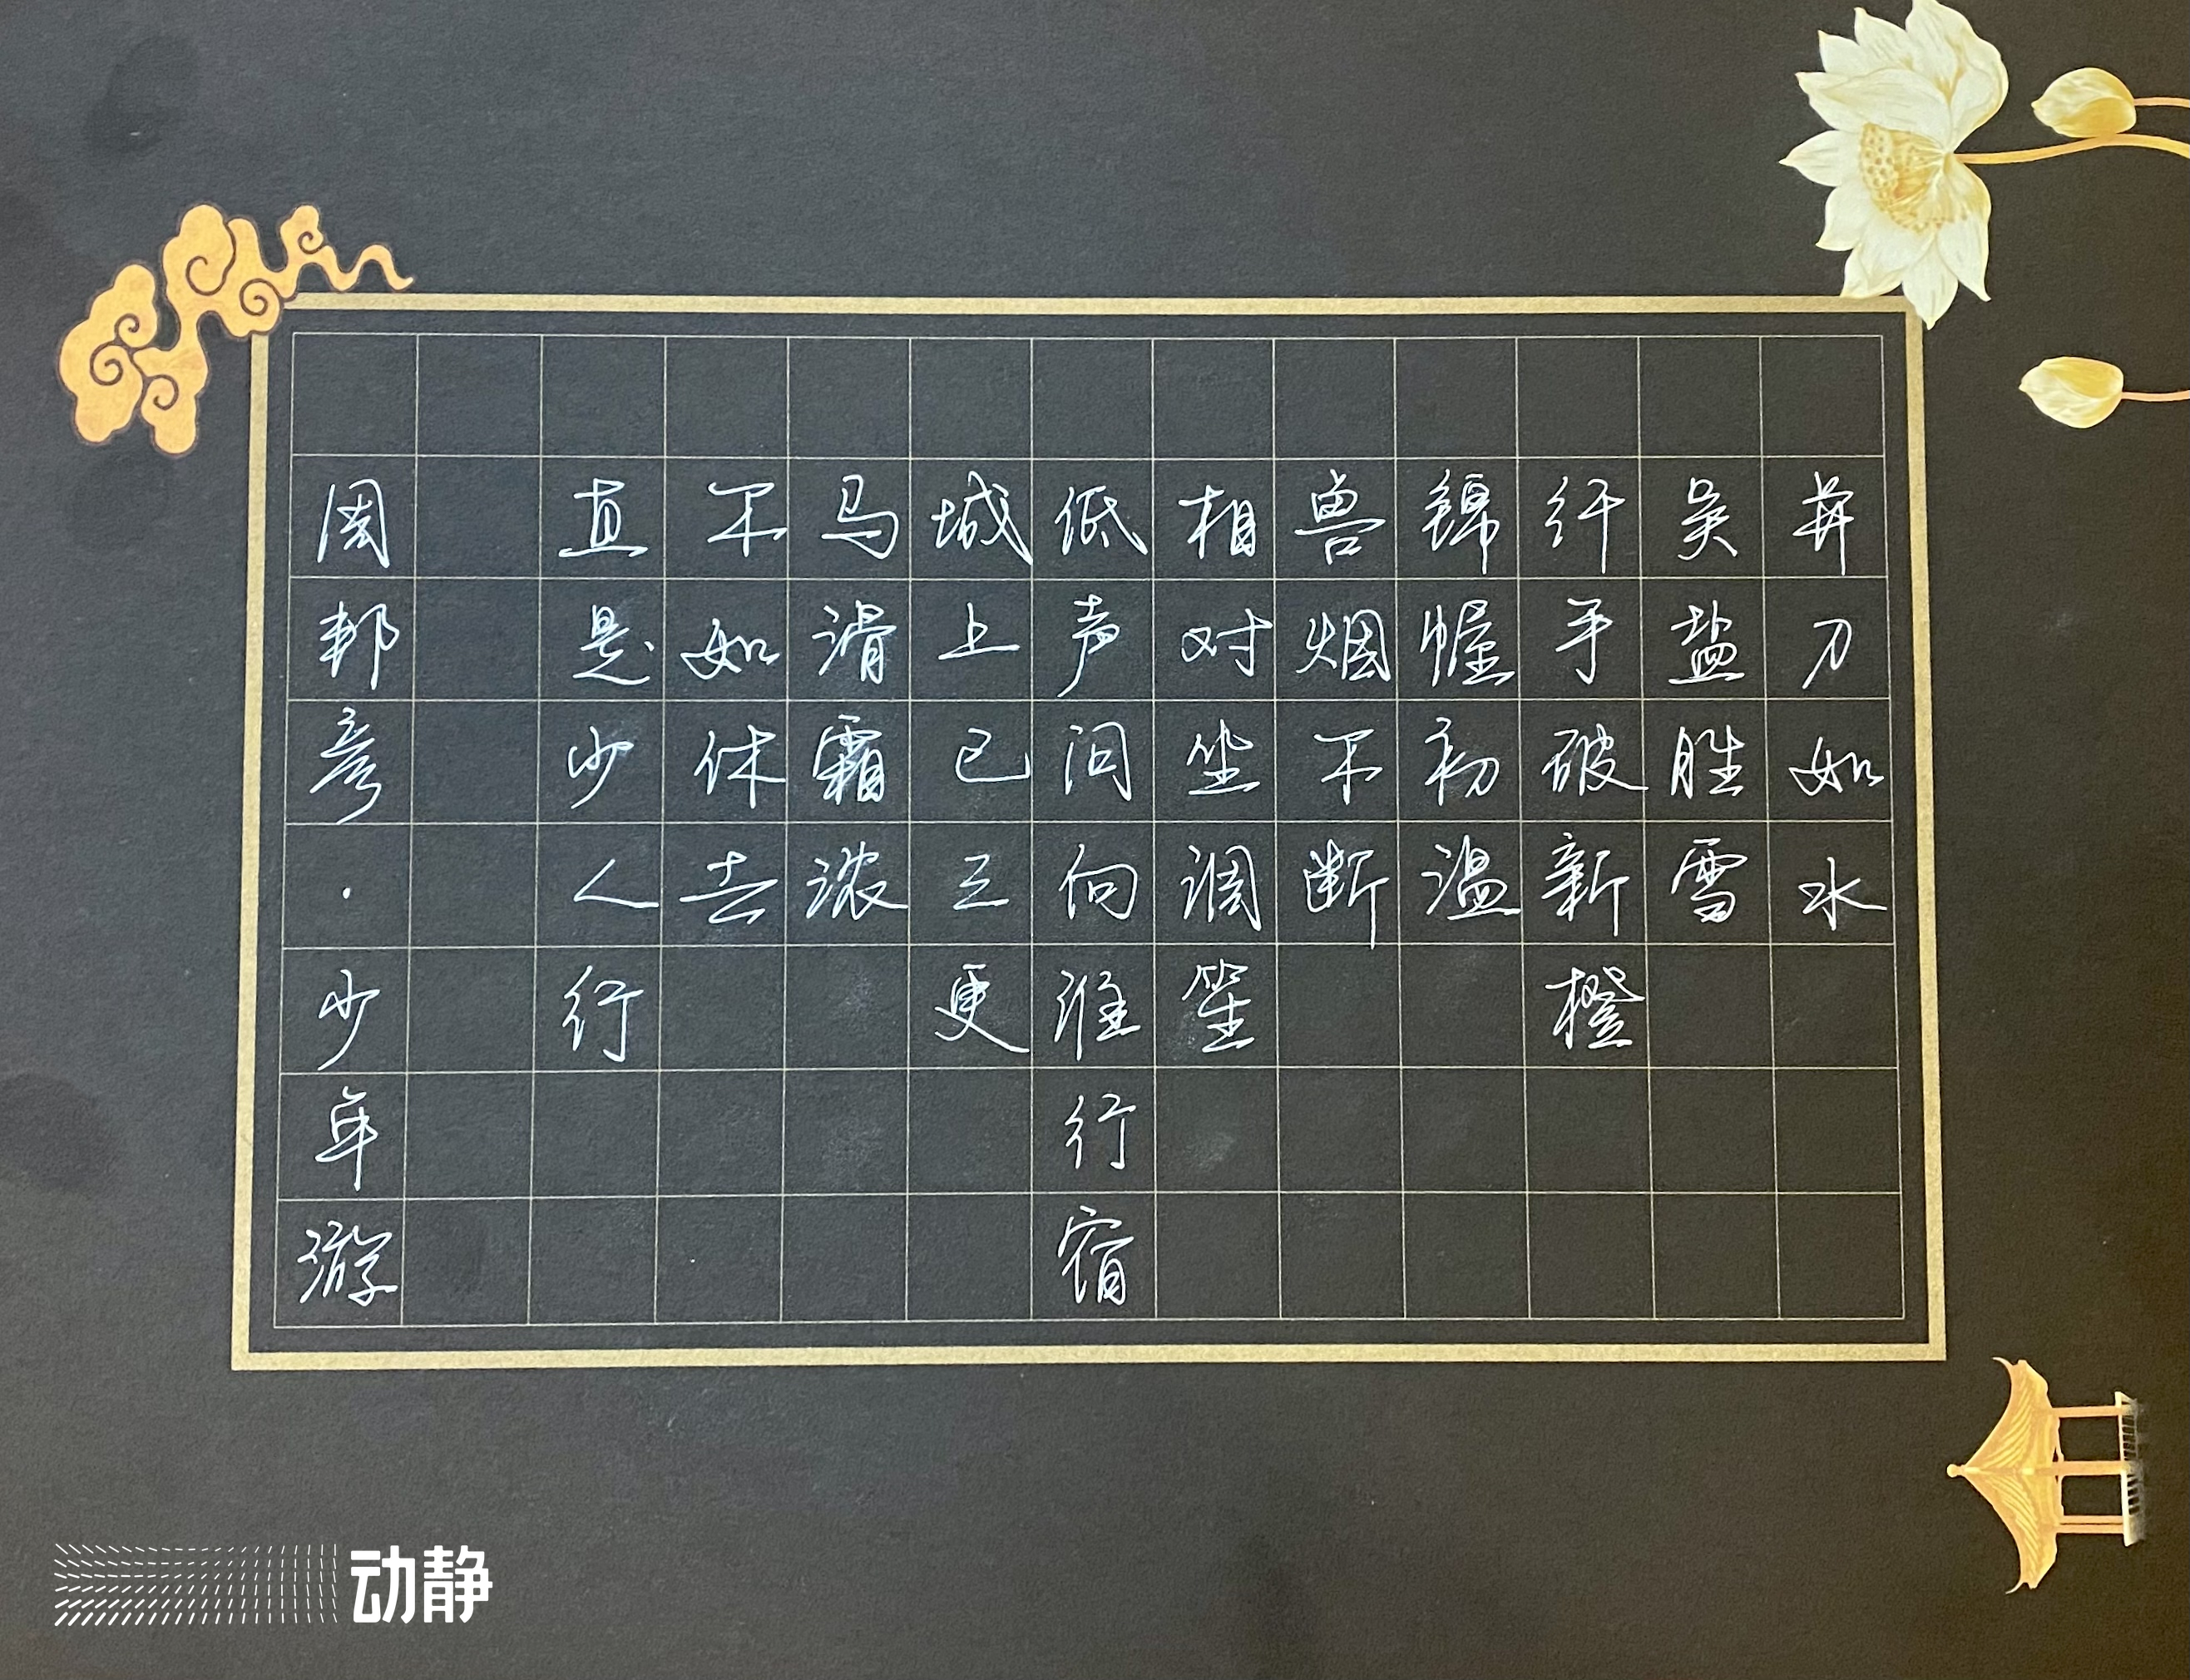 并刀如水
吴盐胜雪
纤手破新橙
锦幄初温
兽烟不断
相对坐调笙
低声问向谁行宿
城上已三更
马滑霜浓
不如休去
直是少人行
周邦彦·少年游
动静